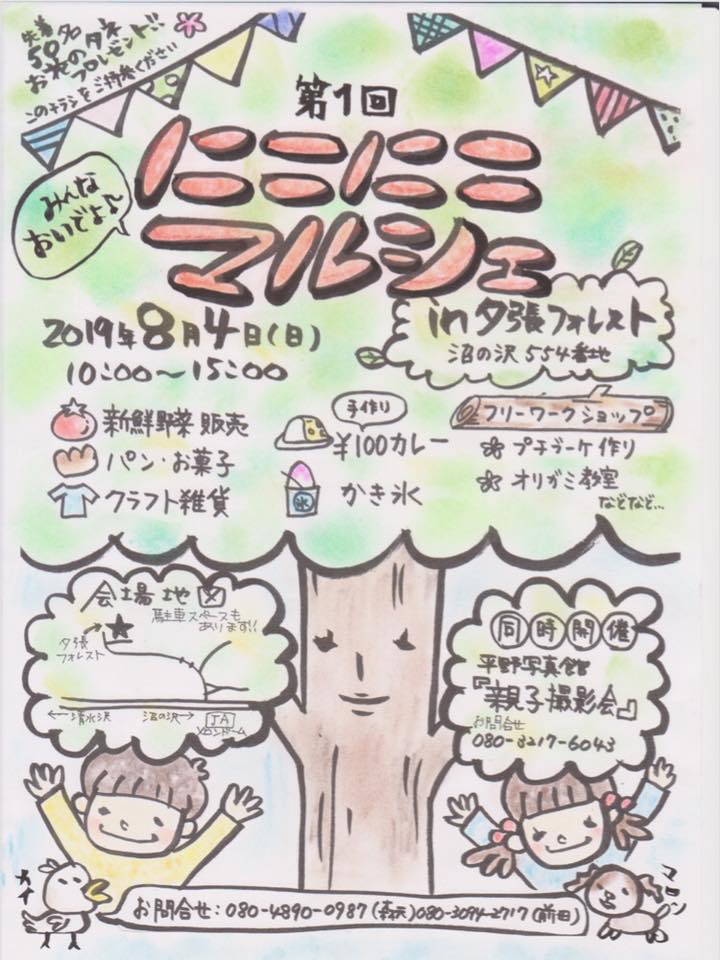 先着
50名
お花のタネ
プレゼント!!
このチラシをご持参ください
第1回
にこにこ
マルシェ
みんな
おいでよ♪
in夕張フォレスト
沼の沢 554番地
2019年8月4日(日)
10:00〜15:00
新鮮野菜 販売
パン・お菓子
クラフト雑貨
手作り
¥100カレー
氷
かき氷
フリーワークショップ
プチブーケ作り
オリガミ教室
などなど…
会場地図
駐車スペースも
あります!!
夕張
フォレスト
←清水沢 沼の沢→
JA
メロンドーム
同時開催
平野写真館
『親子撮影会』
お問合せ
080-3217-6043
マロン
お問合せ:080-4890-0987 080-3094-2717(前田)